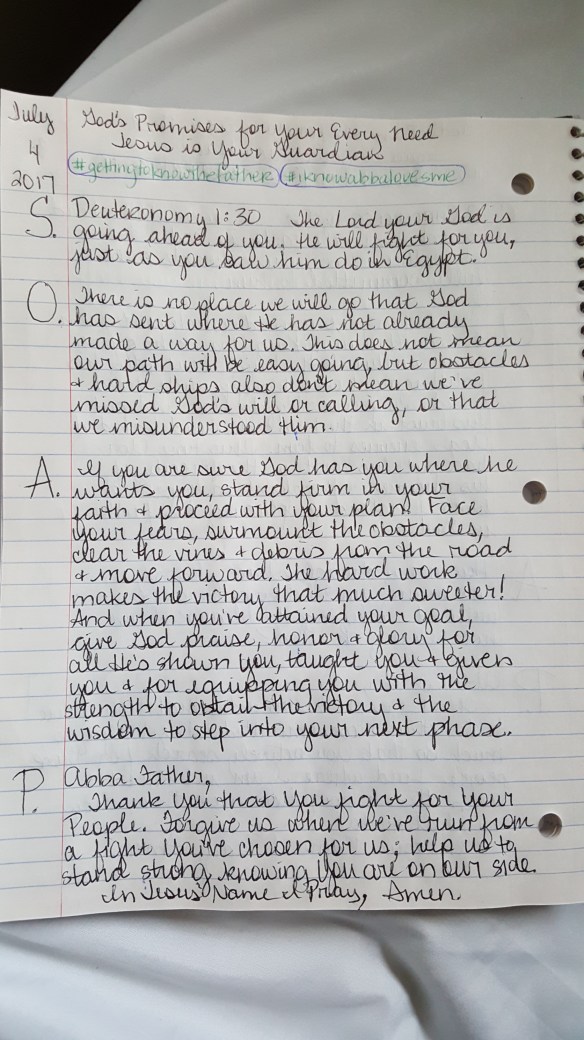 July
4
2017
God's Promises for Your Every Need
Jesus is Your Guardian
#gettingtoknowthefather #iknowabbalovesme
S. Deuteronomy 1:30 The Lord your God is
going ahead of you. He will fight for you,
just as you saw him do in Egypt.
O. There is no place we will go that God
has sent where He has not already
made a way for us. This does not mean
our path will be easy going, but obstacles
& hard ships also don't mean we've
missed God's will or calling, or that
we misunderstood Him.
A. If you are sure God has you where he
wants you, stand firm in your
faith & proceed with your plan. Face
your fears, surmount the obstacles,
clear the vines & debris from the road
& move forward. The hard work
makes the victory that much sweeter!
And when you've attained your goal,
give God praise, honor & glory for
all He's shown you, taught you & given
you & for equipping you with the
strength to obtain the victory & the
wisdom to step into your next phase.
P. Abba Father,
Thank you that You fight for Your
People. Forgive us when we've run from
a fight You've chosen for us; help us to
stand strong knowing You are on our side.
In Jesus' Name I Pray, Amen.